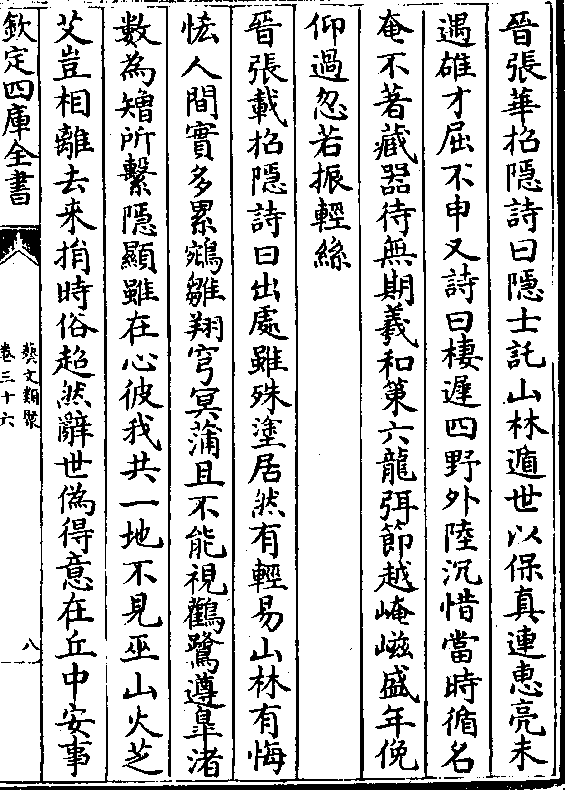 晉張華招隱詩曰隱士託山林遁世以保真連惠亮未
遇雄才屈不申又詩曰棲遲四野外陸沉惜當時循名
奄不著藏器待無期羲和策六龍弭節越崦嵫盛年俛
仰過忽若振輕絲
晉張載招隱詩曰出處雖殊塗居然有輕易山林有悔
恡人間實多累鵷雛翔穹冥蒲且不能視鸛鷺遵臯渚
數為矰所繫隱顯雖在心彼我共一地不見巫山火芝
艾豈相離去來捐時俗超然辭世偽得意在丘中安事
欽定四庫全書
藝文類聚
卷三十六
八